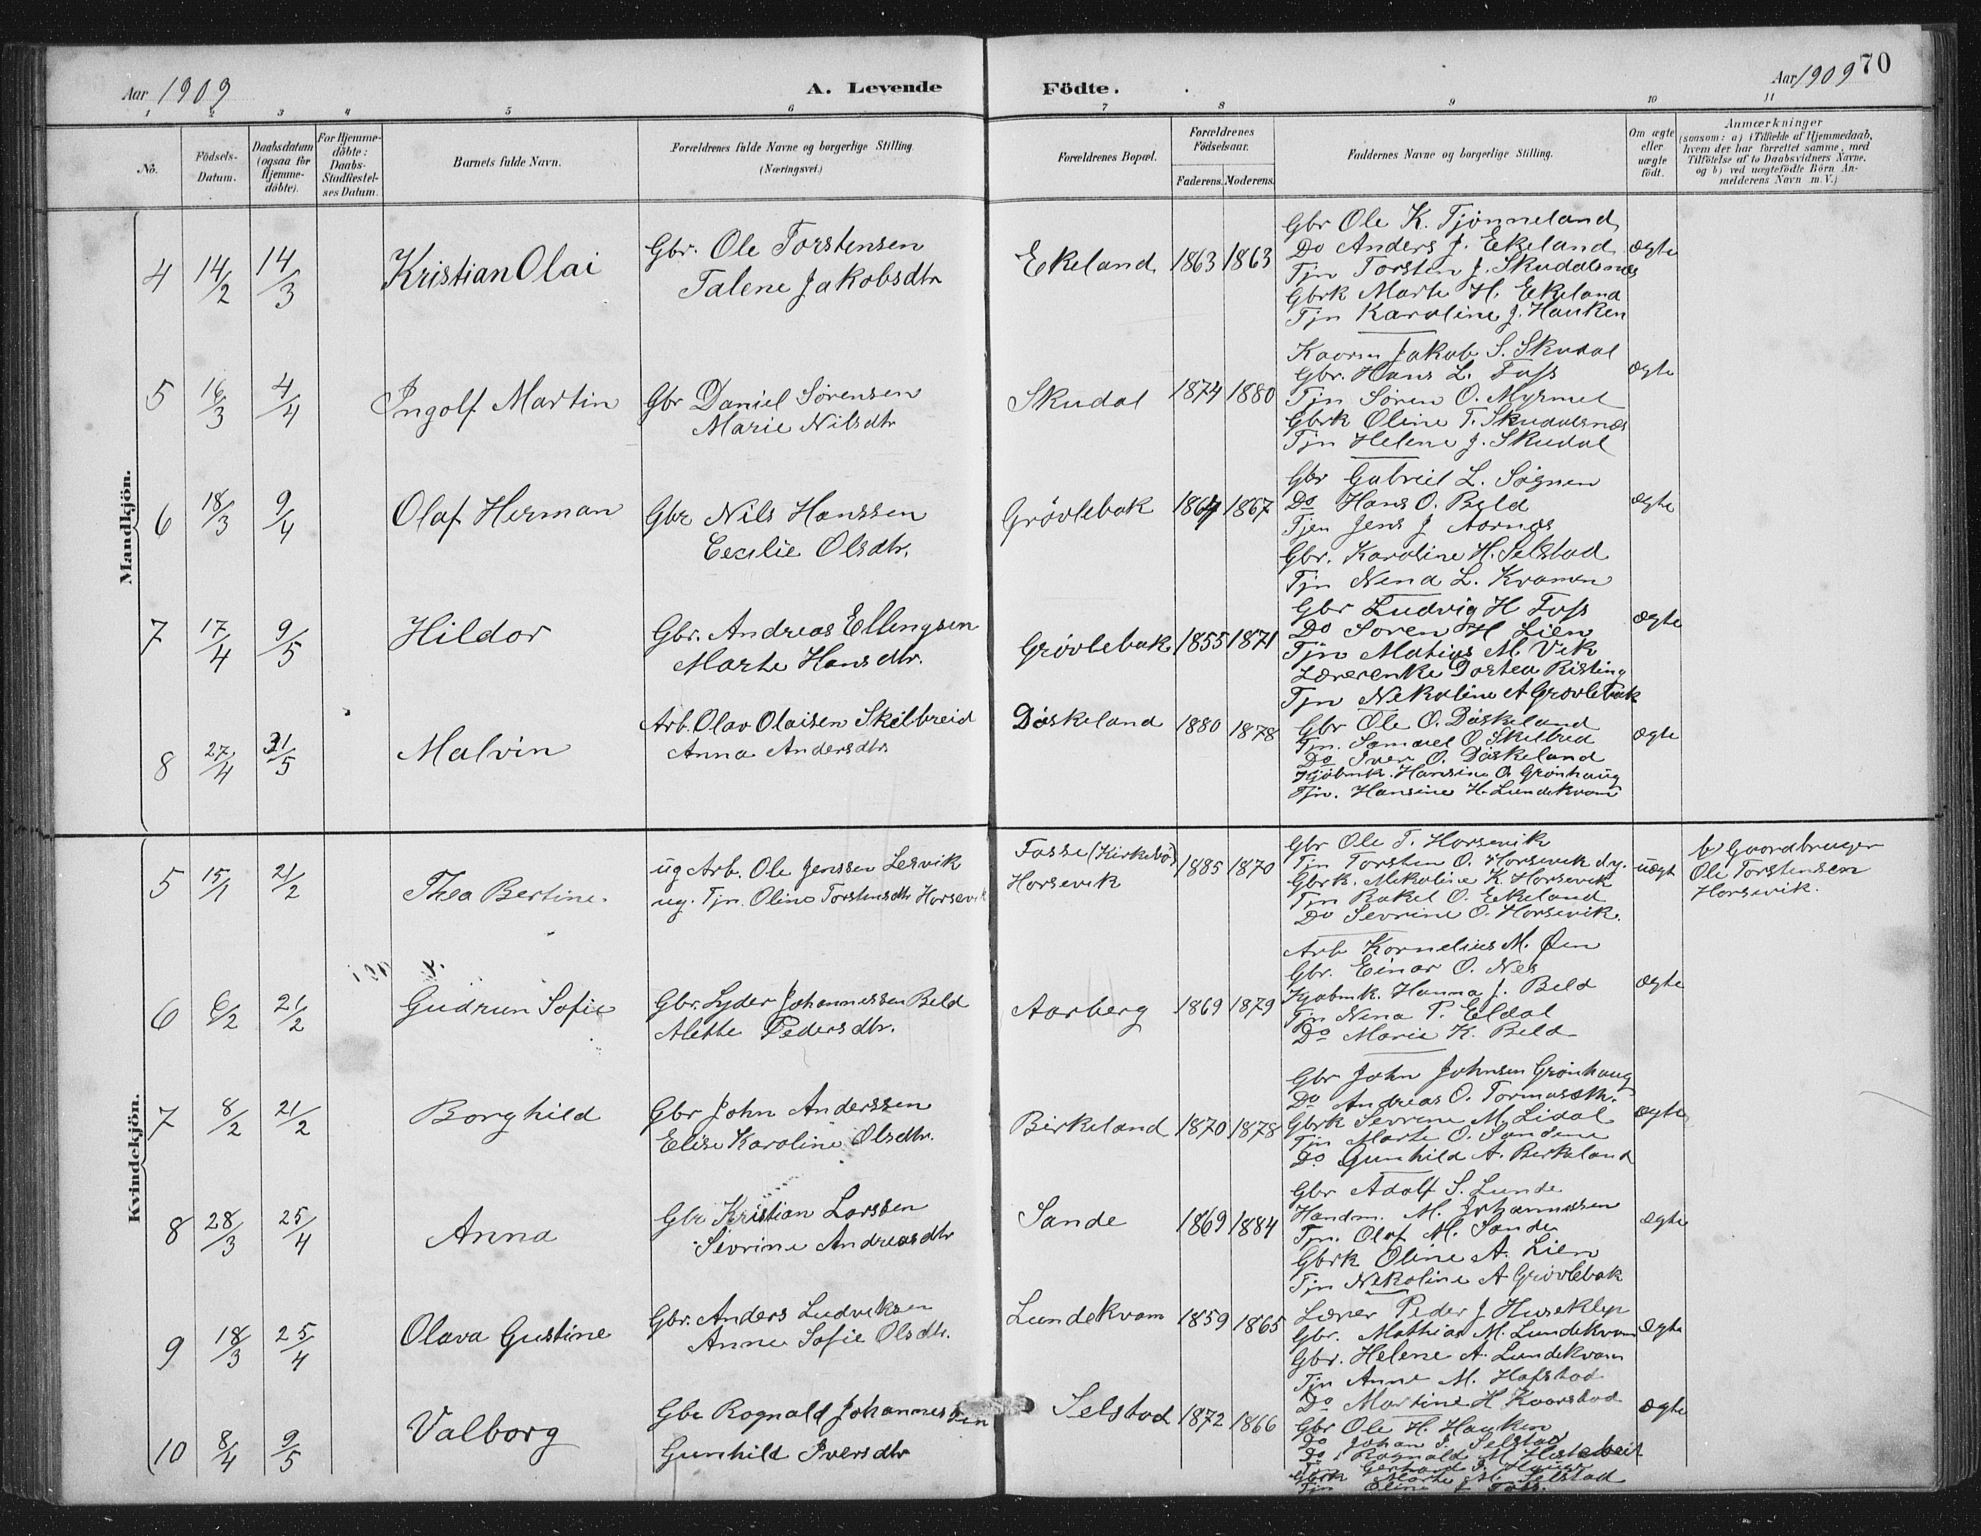 Aar 1909
A. Levende
Födte.
Aar 1909
70
1 2 3 4 5 6 7 8 9 10 11
No.
Födsels-Datum.
Daabsdatum (ogsaa for Hjemme-döbte).
For Hjemme-döbte: Daabs-Stadfæstel-ses Datum.
Barnets fulde Navn.
Forældrenes fulde Navne og borgerlige Stilling (Næringsvei.)
Forældrenes Bopæl.
Forældrenes Födselsaar.
Faderens. Moderens.
Faddernes Navne og borgerlige Stilling.
Om ægte eller uægte födt.
Anmærkninger
(saasom: a) i Tilfælde af Hjemmedaab, hvem der har forrettet samme, med Tilföielse af to Daabsvidners Navne. og b) ved uægtefödte Börn An-melderens Navn m.V.)
Mandkjön.
4 14/2 14/3 Kristian Olai
Gbr. Ole Torstensen
Talene Jakobsdtr
Ekeland 1863 1863
Gbr Ole K. Tjönneland
Do Anders J. Ekeland
Tjn Torsten J. Skudalsnes
Gbrk Marte H. Ekeland
Tjn Karoline J. Hauken
ægte
5 16/3 4/4 Ingolf Martin
Gbr Daniel Sørensen
Marie Nilsdtr
Skudal 1874 1880
Kaarm Jakob S. Skudal
Gbr. Hans L. Foss
Tjn Søren O. Myrmel
Gbrk Oline T. Skudalsnes
Tjn Helene J. Skudal
ægte
6 18/3 9/4 Olaf Herman
Gbr Nils Hanssen
Cecilie Olsdtr.
Grøvlebak 1864 1867
Gbr Gabriel L. Søgnen
Do Hans O. Beld
Tjen Jens J Aarnæs
Gbr. Karoline H. Selstad
Tjn Nena L. Kramen
ægte
7 17/4 9/5 Hildor
Gbr. Andreas Ellengsen
Marte Hansdtr.
Grøvlebak 1855 1871
Gbr Ludvig H Foss
Do Søren H Lien
Tjn Matias M. Vik
Lærerenke Dortea Risting
Tjn Nekoline A Grøvlebak
ægte
8 27/4 31/5 Malvin
Arb. Olav Olaisen Skilbreid
Anna Andersdtr.
Døskeland 1880 1878
Gbr Ole O. Døskeland
Tjn. Samuel O Skilbred
Do Iver O. Døskeland
Kjøbmk. Hansine O. Grønhaug
Tjn. Hansine H. Lundekvam
ægte
Kvindekjön.
5 15/1 21/2 Thea Bertine.
ug Arb. Ole Jenssen Lesvik
ug. Tjn. Oline Torstensdtr Horsevik
Fosse (Kirkebø)
Horsevik
1885 1870
Gbr Ole T. Horsevik
Tjn Torsten O. Horsevik d.y.
Gbrk. Mikoline K. Horsevik
Tjn Rakel O. Ekeland
Do Sevrine O. Horsevik.
uægt
b) Gaardbruger
Ole Torstensen
Horsevik.
6 6/2 21/2 Gudrun Sofie
Gbr. Lyder Johannessen Beld
Alette Pedersdtr.
Aarberg 1869 1879
Arb Kornelius M. Øen
Gbr. Einar O. Nes
Kjøbmk. Hanna J. Beld
Tjn Nena P. Eldal
Do Marie K. Beld
ægte
7 8/2 21/2 Borghild
Gbr John Anderssen
Elise Karoline Olsdtr.
Birkeland 1870 1878
Gbr John Johnsen Grønhaug
Do Andreas O. Tormaseth.
Gbrk Sevrine M. Lidal
Tjn Marte O. Sandene
Do Gunhild A. Birkeland
ægte
8 28/3 25/4 Anna
Gbr Kristian Larssen
Sevrine Andreasdtr
Sande 1869 1884
Gbr Adolf S. Lunde
Handm. M. Johannessen
Tjn. Olaf M. Sande
Gbrk Oline A. Lien
Tjn Nekoline A Grøvlebak
ægte
9 18/3 25/4 Olava Gustine
Gbr. Anders Ludviksen
Anne Sofie Olsdtr.
Lundekvam 1859 1865
Lærer Peder J Huseklep
Gbr. Mathias M. Lundekvam
Gbr. Helene A. Lundekvam
Tjn Anne M. Hafstad
Do Martine H Kvarstad
ægte
10 8/4 9/5 Valborg
Gbr Rognald Johannessen
Gunhild Iversdtr
Selstad 1872 1866
Gbr Ole H. Hauken
Do Johan J. Selstad
Do Rognald M.
Tjn Gerhard J.
Gbrk Marte M. Selstad
Tjn Oline J. Foss.
ægte